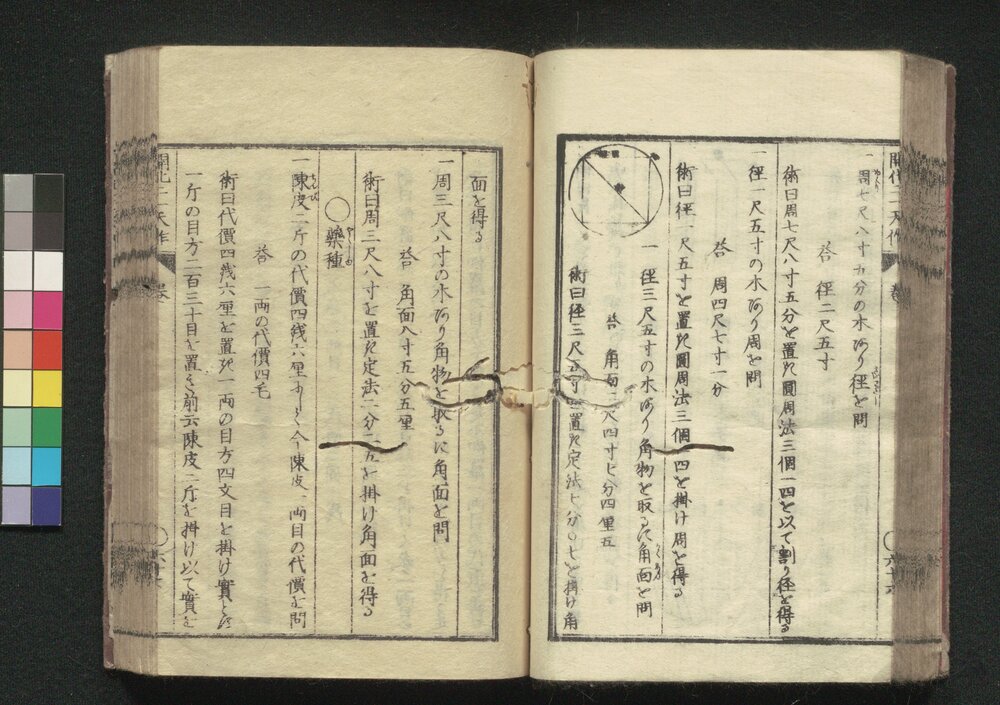 一周七尺八寸五分の木あり径を問
答 径二尺五寸
術曰周七尺八寸五分を置き圓周法三個一四を以て割り径を得る
一径一尺五寸の木あり周を問
答 周四尺七寸一分
術曰径一尺五寸を置き圓周法三個一四を掛け周を得る
一径三尺五寸の木あり角物を取るに角面を問
答 角面二尺四寸七分四厘五
術曰径三尺五寸を置き定法七分〇七を掛け角
面を得る
一周三尺八寸の木あり角物を取るに角面を問
答 角面八寸五分五厘
術曰周三尺八寸を置き定法二分二五を掛け角面を得る
〇藥種
一陳皮二斤の代價四銭六厘すより今陳皮一両目の代價を問
答 一両の代價四毛
術曰代價四銭六厘を置き一両の目方四文目を掛け實とし
一斤の目方二百三十目を置き前云陳皮二斤を掛け以て實を